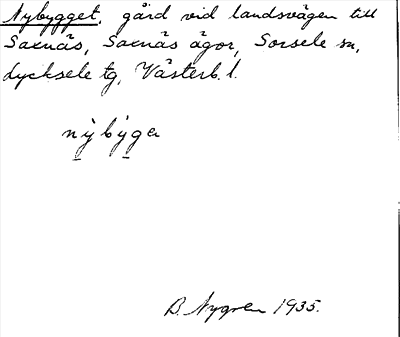 Nybygget, gård vid landsvägen till
Saxnäs, Saxnäs ägor, Sorsele sn,
Lycksele tg, Västerb. l.
nỳbýga
B. Nygren 1935.